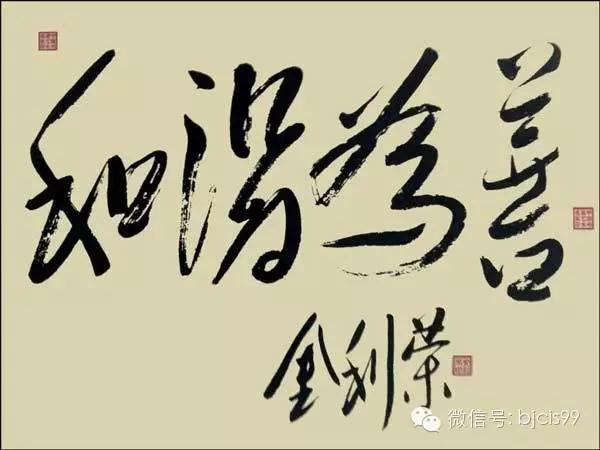 和為善
金利荣
微信号: bjcis99